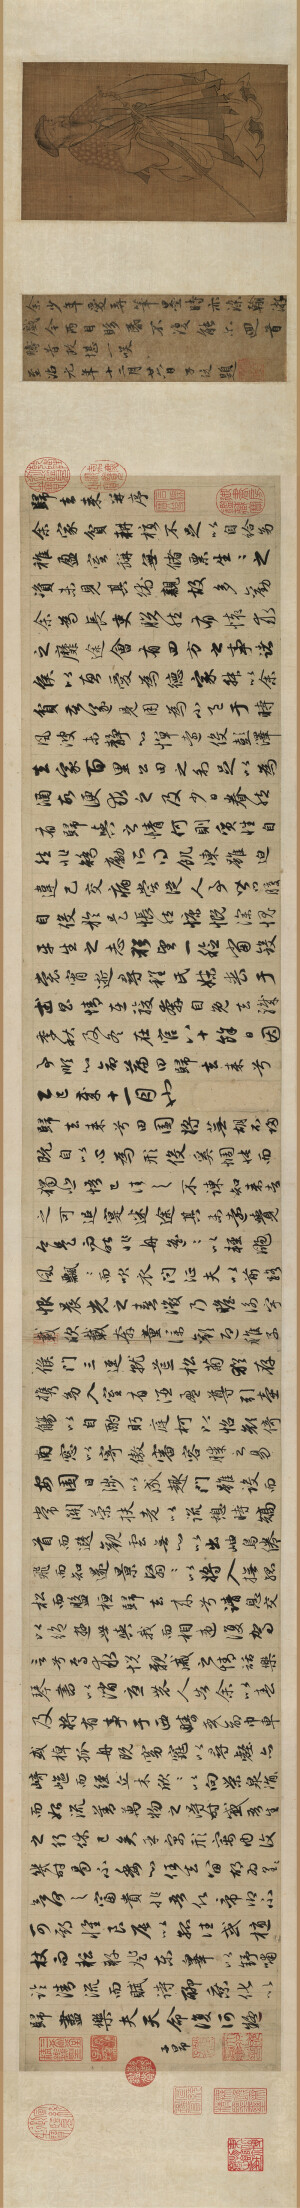 余少年愛弄筆墨時亦
戲今兩目眵昏不復能
至治元年十二月廿六日
歸去來并序
余家貧耕植不足以自給幼
稚盈室缾無儲粟生生之
資未見其術親故多勸
余為長吏脫然有懷求
之靡途會有四方之事諸
侯以惠愛為德家叔以余
貧苦遂見用為小邑于時
風波未靜心憚遠役彭澤
去家百里公田之利足以為
酒故便求之及少日眷然
有歸與之情何則質性自
然非矯勵所得飢凍雖迫
違己交病嘗從人事皆口腹
自役於是悵然慷慨深愧
平生之志猶望一稔當斂
裳宵逝尋程氏妹喪于
武昌情在駿奔自免去職
季秋及冬在官八十餘日因
事順心命篇曰歸去來兮
乙巳歲十一月也
歸去來兮田園將蕪胡不歸
既自以心為形役奚惆悵而
獨悲悟已往之不諫知來者
之可追寔迷途其未遠覺
今是而昨非舟遙遙以輕颺
風飄飄而吹衣問征夫以前路
恨晨光之熹微乃瞻衡宇
載欣載奔童僕歡迎稚子
候門三逕就荒松菊猶存
攜幼入室有酒盈尊引壺
觴以自酌眄庭柯以怡顏倚
南窗以寄傲審容膝之易
安園日涉以成趣門雖設而
常關策扶老以流憩時矯
首而遐觀雲無心以出岫鳥倦
飛而知還景翳翳以將入撫孤
松而盤桓歸去來兮請息交
以絕遊世與我而相違復駕
言兮焉求悅親戚之情話樂
琴書以消憂農人告余以春
及將有事于西疇或命巾車
或棹孤舟既窈窕以尋壑亦
崎嶇而經丘木欣欣以向榮泉涓涓
而始流羨萬物之得時感吾生
之行休已矣乎寓形宇內復
幾時曷不委心任去留胡為遑遑
欲何之富貴非吾願帝鄉不
可期懷良辰以孤往或植
杖而耘耔登東皋以舒嘯
臨清流而賦詩聊乘化以
歸盡樂夫天命復何疑
子昂